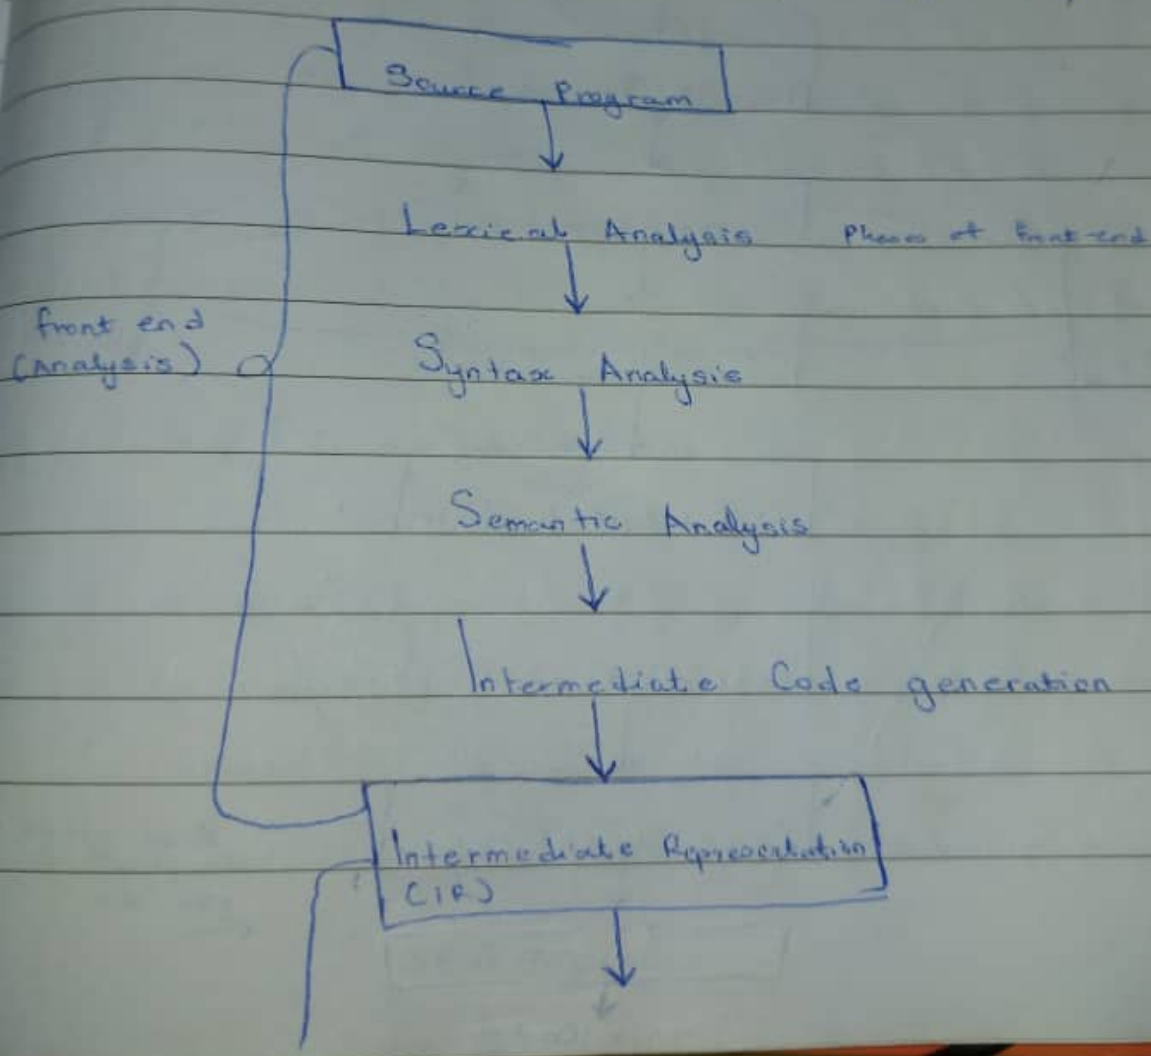 Source Program
Lexical Analysis Phases of front-end
front end
(Analysis)
Syntax Analysis
Semantic Analysis
Intermediate Code generation
Intermediate Representation
(IR)